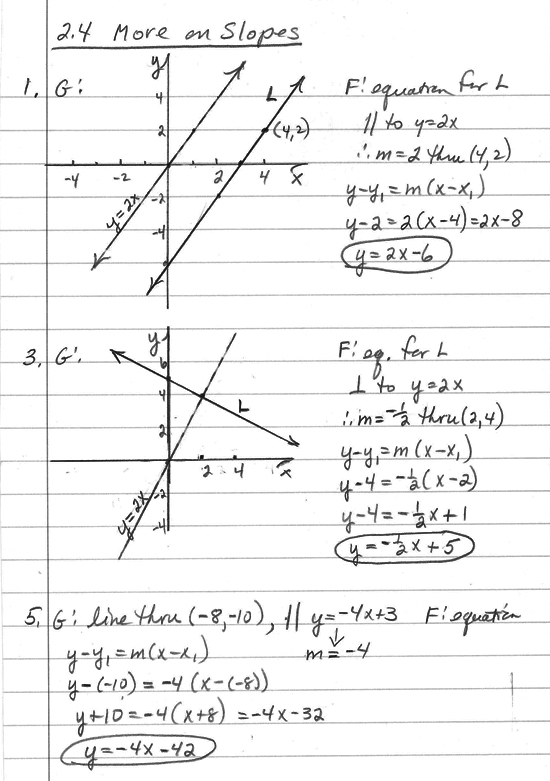 2.4 More on Slopes
1. G:
y
4
2
-4 -2 2 4 x
-2
-4
L
(4,2)
y=2x
F: equation for L
// to y=2x
∴ m=2 thru (4,2)
y-y₁=m(x-x₁)
y-2=2(x-4)=2x-8
y=2x-6
3. G:
y
6
4
2
2 4 x
-2
-4
L
y=2x
F: eq. for L
⊥ to y=2x
∴ m=-1/2 thru (2,4)
y-y₁=m(x-x₁)
y-4=-1/2(x-2)
y-4=-1/2x+1
y=-1/2x+5
5. G: line thru (-8,-10), // y=-4x+3 F: equation
y-y₁=m(x-x₁) m=-4
y-(-10)=-4(x-(-8))
y+10=-4(x+8)=-4x-32
y=-4x-42